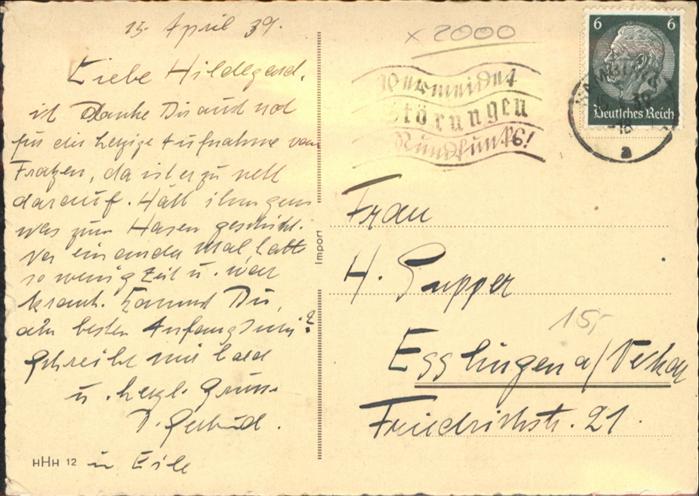 15. April 39.
Liebe Hildegard.
ich danke Dir auch noch
für die herzige Aufnahme von
da ist er zu nett
darauf. Hätt ihm gern
was zum Hasen geschickt.
ein ander Mal, hatte
so wenig Zeit u. war
krank. Kommst Du,
Anfang Juni?
Schreibe mir bald
u. herzl. Grüsse
D. Gertrud.
in Eile
HHH 12
Import
x 2000
Vermeidet
Störungen
Rundfunks!
6 6
Deutsches Reich
a
Frau
H. Supper
15,-
Esslingen a/Neckar
Friedrichstr. 21.